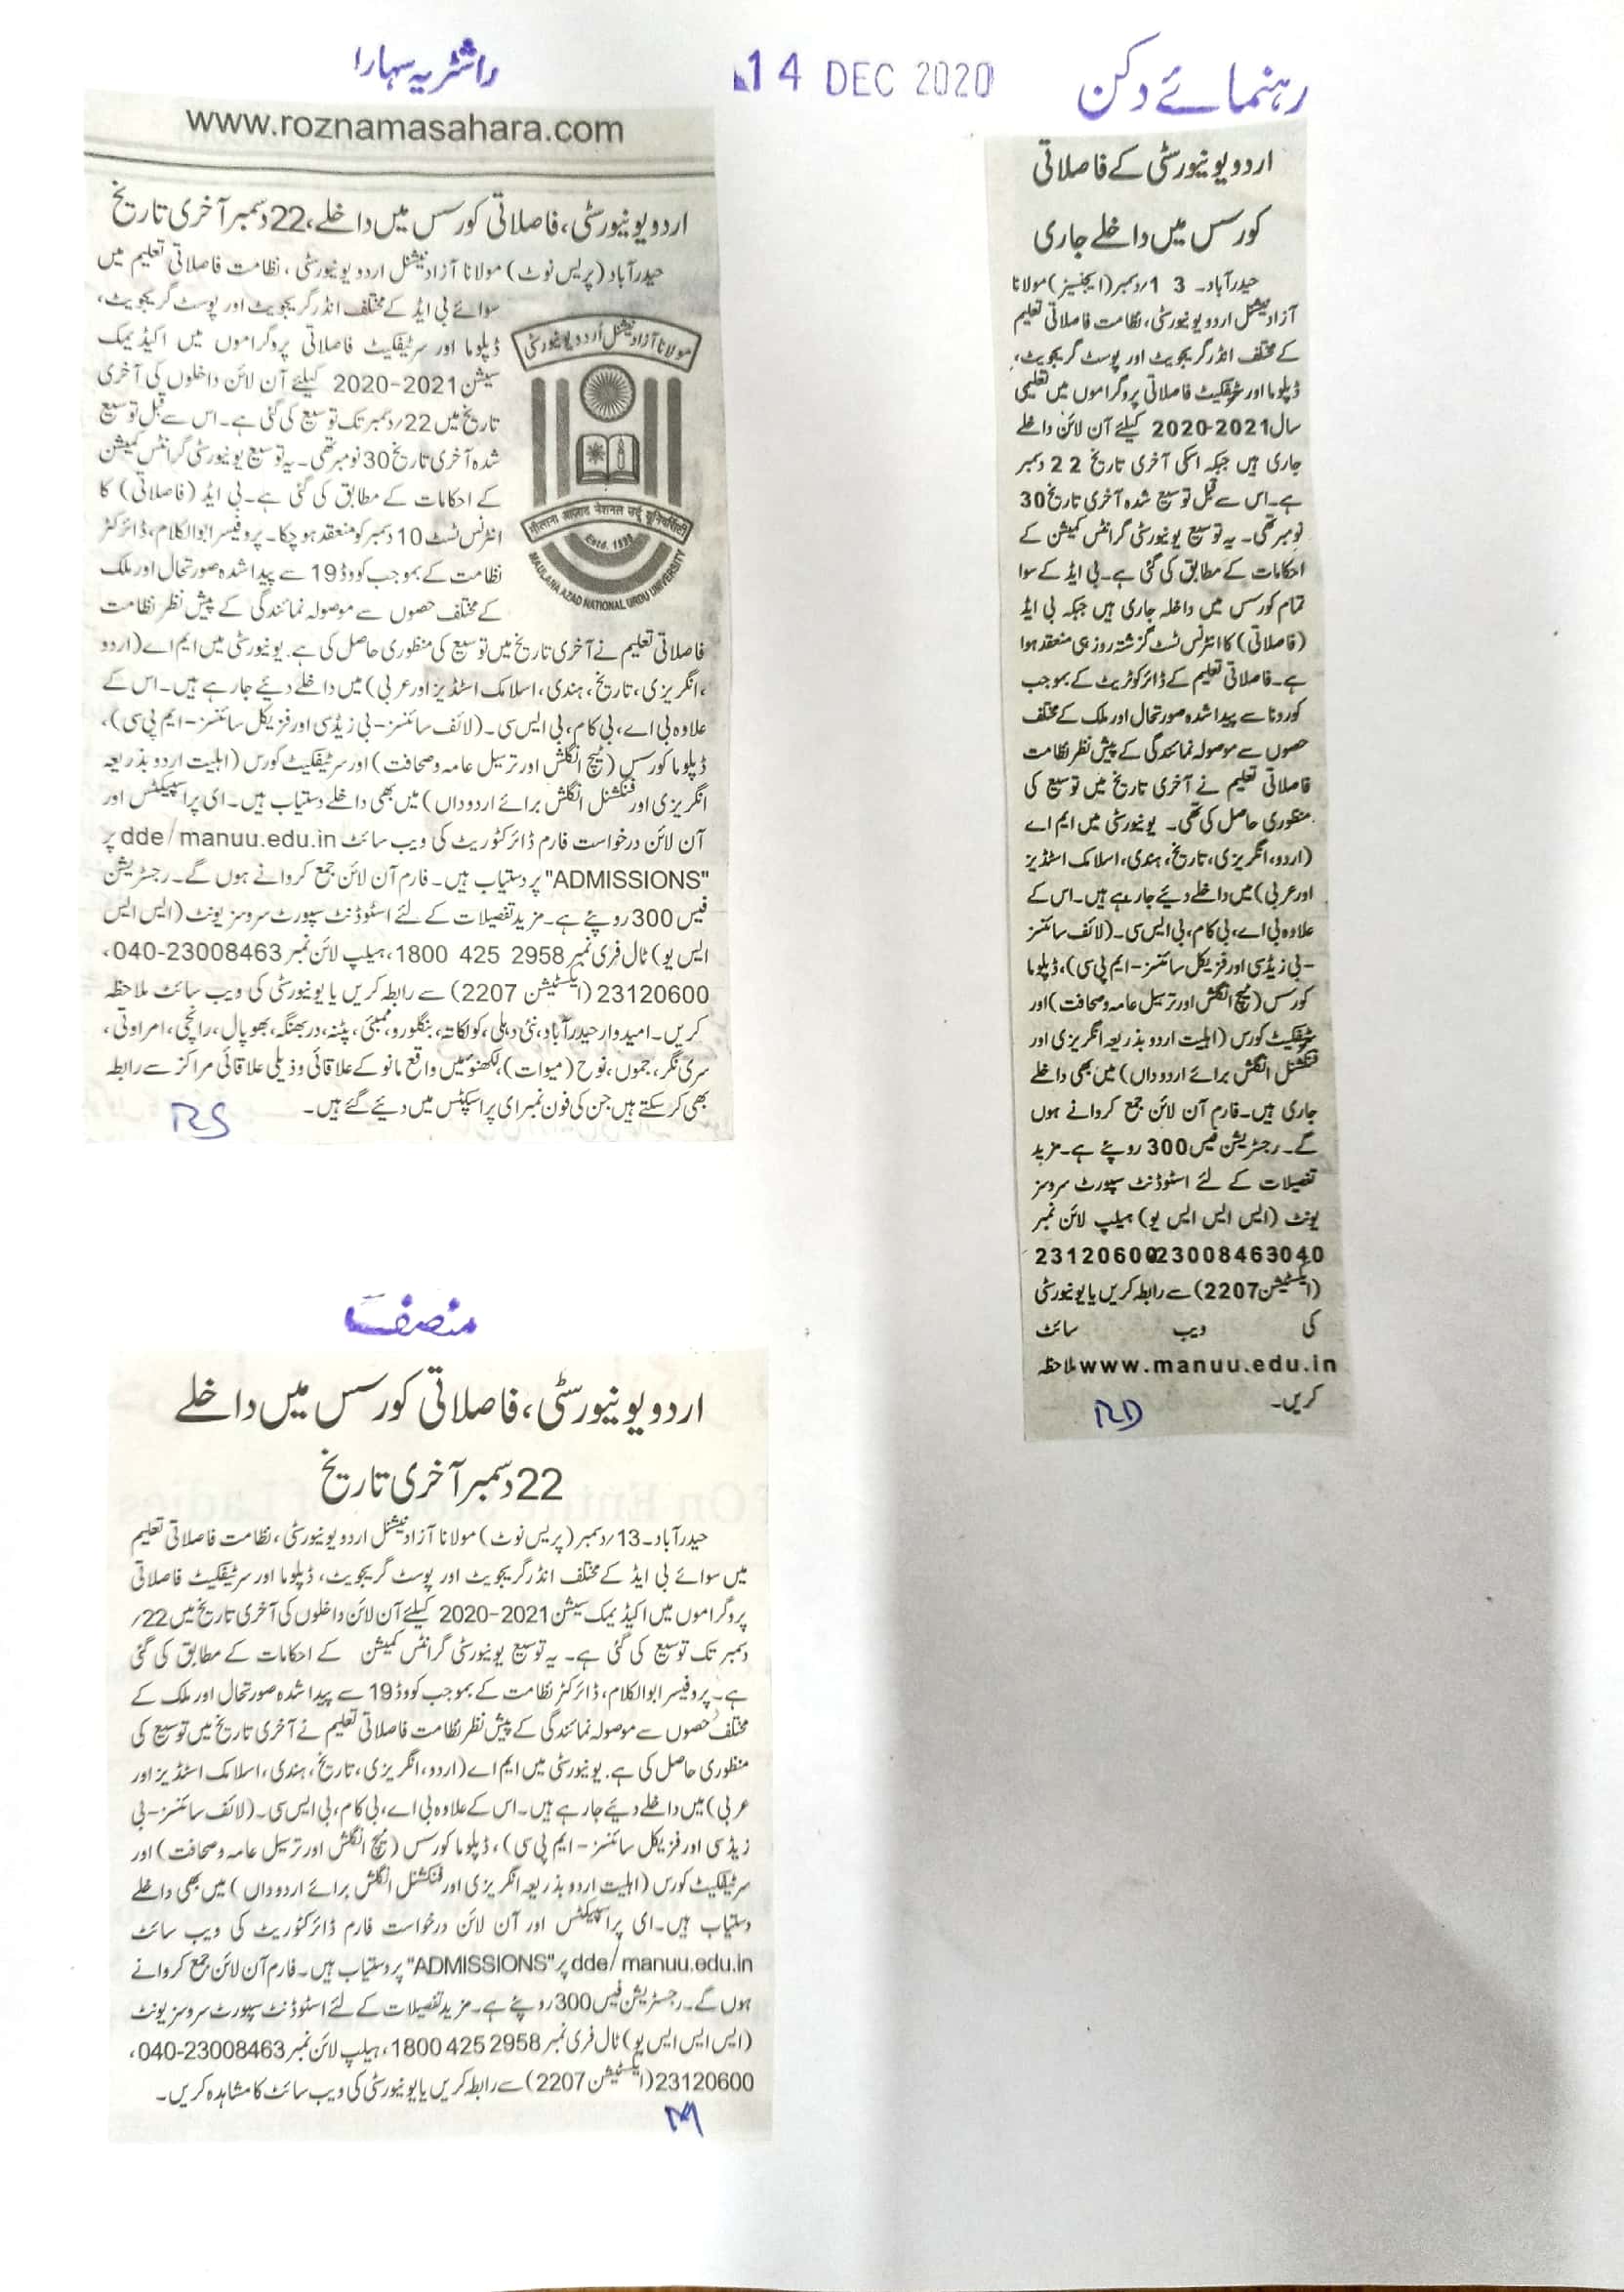 راشٹریہ سہارا
14 DEC 2020
رہنمائے دکن
www.roznamasahara.com
اردو یونیورسٹی، فاصلاتی کورسس میں داخلے، 22 دسمبر آخری تاریخ
حیدرآباد (پریس نوٹ) مولانا آزاد نیشنل اردو یونیورسٹی، نظامت فاصلاتی تعلیم میں
سوائے بی ایڈ کے مختلف انڈر گریجویٹ اور پوسٹ گریجویٹ،
ڈپلوما اور سرٹیفکیٹ فاصلاتی پروگراموں میں اکیڈیمک
سیشن 2021-2020 کیلئے آن لائن داخلوں کی آخری
تاریخ میں 22؍دسمبر تک توسیع کی گئی ہے۔ اس سے قبل توسیع
شدہ آخری تاریخ 30 نومبر تھی۔ یہ توسیع یونیورسٹی گرانٹس کمیشن
کے احکامات کے مطابق کی گئی ہے۔ بی ایڈ (فاصلاتی) کا
انٹرنس ٹسٹ 10 دسمبر کو منعقد ہو چکا۔ پروفیسر ابوالکلام، ڈائرکٹر
نظامت کے بموجب کووڈ 19 سے پیدا شدہ صورتحال اور ملک
کے مختلف حصوں سے موصولہ نمائندگی کے پیش نظر نظامت
فاصلاتی تعلیم نے آخری تاریخ میں توسیع کی منظوری حاصل کی ہے۔ یونیورسٹی میں ایم اے (اردو
،انگریزی، تاریخ، ہندی، اسلامک اسٹڈیز اور عربی) میں داخلے دیئے جارہے ہیں۔ اس کے
علاوہ بی اے، بی کام، بی ایس سی۔ (لائف سائنسز- بی زیڈ سی اور فزیکل سائنسز- ایم پی سی)،
ڈپلوما کورس (ٹیچ انگلش اور ترسیل عامہ و صحافت) اور سرٹیفکیٹ کورس (اہلیت اردو بذریعہ
انگریزی اور فنکشنل انگلش برائے اردو داں) میں بھی داخلے دستیاب ہیں۔ ای پراسپکٹس اور
آن لائن درخواست فارم ڈائرکٹوریٹ کی ویب سائٹ dde/manuu.edu.in پر
"ADMISSIONS" پر دستیاب ہیں۔ فارم آن لائن جمع کروانے ہوں گے۔ رجسٹریشن
فیس 300 روپئے ہے۔ مزید تفصیلات کے لئے اسٹوڈنٹ سپورٹ سروسز یونٹ (ایس ایس
ایس یو) ٹال فری نمبر 1800 425 2958، ہیلپ لائن نمبر 040-23008463،
23120600 (ایکسٹینشن 2207) سے رابطہ کریں یا یونیورسٹی کی ویب سائٹ ملاحظہ
کریں۔ امیدوار حیدرآباد، نئی دہلی، کولکاتہ، بنگلورو، ممبئی، پٹنہ، دربھنگہ، بھوپال، رانچی، امراوتی،
سری نگر، جموں، نوح (میوات)، لکھنؤ میں واقع مانو کے علاقائی و ذیلی علاقائی مراکز سے رابطہ
بھی کر سکتے ہیں جن کی فون نمبر ای پراسپکٹس میں دیئے گئے ہیں۔
RS
مولانا آزاد نیشنل اُردو یونیورسٹی
मौलाना आज़ाद नेशनल उर्दू यूनिवर्सिटी
Estd. 1998
MAULANA AZAD NATIONAL URDU UNIVERSITY
منصف
اردو یونیورسٹی، فاصلاتی کورسس میں داخلے
22 دسمبر آخری تاریخ
حیدرآباد۔ 13؍دسمبر (پریس نوٹ) مولانا آزاد نیشنل اردو یونیورسٹی، نظامت فاصلاتی تعلیم
میں سوائے بی ایڈ کے مختلف انڈر گریجویٹ اور پوسٹ گریجویٹ، ڈپلوما اور سرٹیفکیٹ فاصلاتی
پروگراموں میں اکیڈیمک سیشن 2021-2020 کیلئے آن لائن داخلوں کی آخری تاریخ میں 22؍
دسمبر تک توسیع کی گئی ہے۔ یہ توسیع یونیورسٹی گرانٹس کمیشن کے احکامات کے مطابق کی گئی
ہے۔ پروفیسر ابوالکلام، ڈائرکٹر نظامت کے بموجب کووڈ 19 سے پیدا شدہ صورتحال اور ملک کے
مختلف حصوں سے موصولہ نمائندگی کے پیش نظر نظامت فاصلاتی تعلیم نے آخری تاریخ میں توسیع کی
منظوری حاصل کی ہے۔ یونیورسٹی میں ایم اے (اردو، انگریزی، تاریخ، ہندی، اسلامک اسٹڈیز اور
عربی) میں داخلے دیئے جارہے ہیں۔ اس کے علاوہ بی اے، بی کام، بی ایس سی۔ (لائف سائنسز- بی
زیڈ سی اور فزیکل سائنسز- ایم پی سی)، ڈپلوما کورسس (ٹیچ انگلش اور ترسیل عامہ و صحافت) اور
سرٹیفکیٹ کورس (اہلیت اردو بذریعہ انگریزی اور فنکشنل انگلش برائے اردو داں) میں بھی داخلے
دستیاب ہیں۔ ای پراسپکٹس اور آن لائن درخواست فارم ڈائرکٹوریٹ کی ویب سائٹ
dde/manuu.edu.in پر "ADMISSIONS" پر دستیاب ہیں۔ فارم آن لائن جمع کروانے
ہوں گے۔ رجسٹریشن فیس 300 روپئے ہے۔ مزید تفصیلات کے لئے اسٹوڈنٹ سپورٹ سروسز یونٹ
(ایس ایس ایس یو) ٹال فری نمبر 1800 425 2958، ہیلپ لائن نمبر 040-23008463،
23120600 (ایکسٹینشن 2207) سے رابطہ کریں یا یونیورسٹی کی ویب سائٹ کا مشاہدہ کریں۔
M
اردو یونیورسٹی کے فاصلاتی
کورسس میں داخلے جاری
حیدرآباد۔ 13؍دسمبر (ایجنسیز) مولانا
آزاد نیشنل اردو یونیورسٹی، نظامت فاصلاتی تعلیم
کے مختلف انڈر گریجویٹ اور پوسٹ گریجویٹ،
ڈپلوما اور سرٹیفکیٹ فاصلاتی پروگراموں میں تعلیمی
سال 2020-2021 کیلئے آن لائن داخلے
جاری ہیں جبکہ اسکی آخری تاریخ 22 دسمبر
ہے۔ اس سے قبل توسیع شدہ آخری تاریخ 30
نومبر تھی۔ یہ توسیع یونیورسٹی گرانٹس کمیشن کے
احکامات کے مطابق کی گئی ہے۔ بی ایڈ کے سوا
تمام کورسس میں داخلہ جاری ہیں جبکہ بی ایڈ
(فاصلاتی) کا انٹرنس ٹسٹ گزشتہ روز ہی منعقد ہوا
ہے۔ فاصلاتی تعلیم کے ڈائرکٹوریٹ کے بموجب
کورونا سے پیدا شدہ صورتحال اور ملک کے مختلف
حصوں سے موصولہ نمائندگی کے پیش نظر نظامت
فاصلاتی تعلیم نے آخری تاریخ میں توسیع کی
منظوری حاصل کی تھی۔ یونیورسٹی میں ایم اے
(اردو، انگریزی، تاریخ، ہندی، اسلامک اسٹڈیز
اور عربی) میں داخلے دیئے جارہے ہیں۔ اس کے
علاوہ بی اے، بی کام، بی ایس سی۔ (لائف سائنز
- بی زیڈ سی اور فزیکل سائنسز- ایم پی سی)، ڈپلوما
کورس (ٹیچ انگلش اور ترسیل عامہ و صحافت) اور
سرٹیفکیٹ کورس (اہلیت اردو بذریعہ انگریزی اور
فنکشنل انگلش برائے اردو داں) میں بھی داخلے
جاری ہیں۔ فارم آن لائن جمع کروانے ہوں
گے۔ رجسٹریشن فیس 300 روپئے ہے۔ مزید
تفصیلات کے لئے اسٹوڈنٹ سپورٹ سروسز
یونٹ (ایس ایس ایس یو) ہیلپ لائن نمبر
23120600 23008463040
(ایکسٹینشن 2207) سے رابطہ کریں یا یونیورسٹی
کی ویب سائٹ
www.manuu.edu.in ملاحظہ
کریں۔
RD